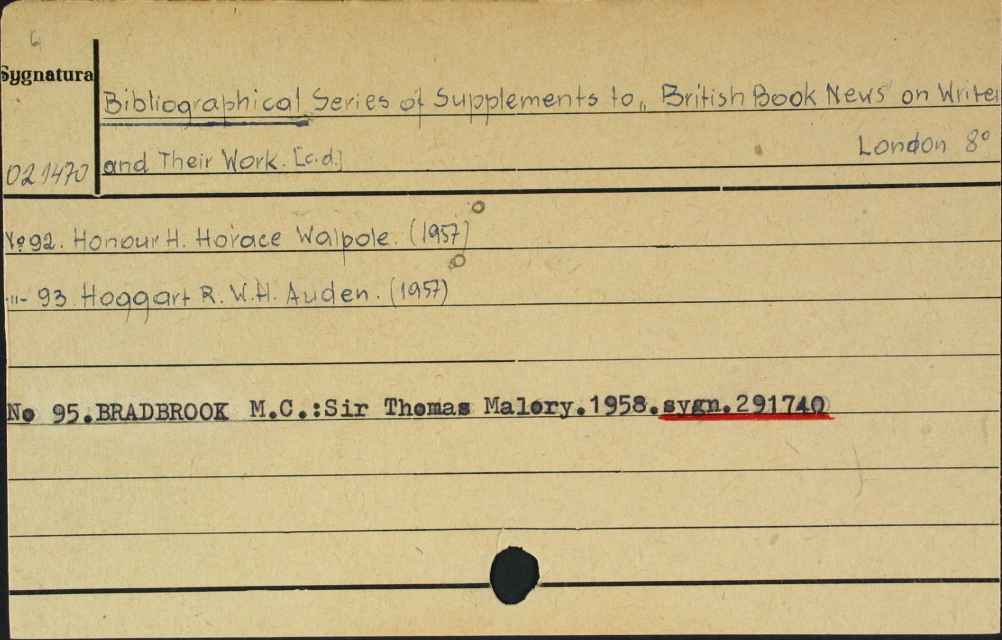 6
Sygnatura
Bibliographical Series of Supplements to „British Book News" on Write
021470 and Their Work. [c.d.] London 8°
No 92. Honour H. Horace Walpole. (1957)
-"- 93 Hoggart R. W.H. Auden. (1957)
No 95.BRADBROOK M.C.:Sir Thomas Malory.1958.sygn.291740